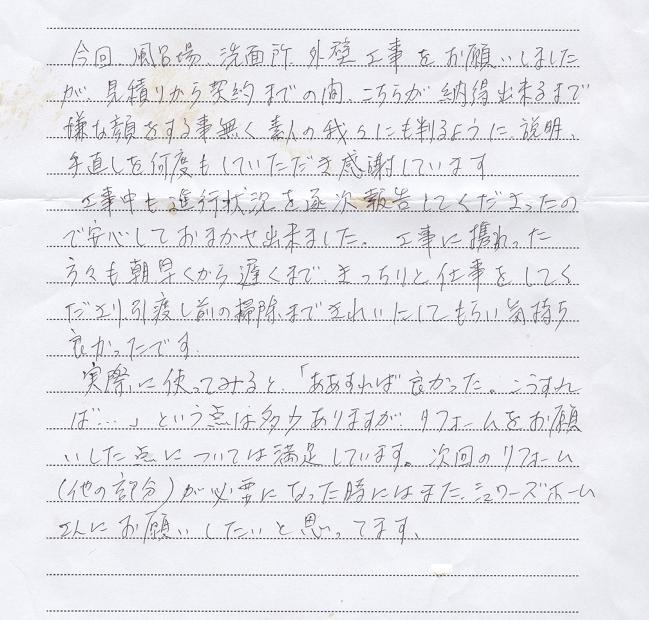 今回、風呂場、洗面所、外壁工事をお願いしました
が、見積りから契約までの間、こちらが納得出来るまで
嫌な顔をする事無く素人の我々にも判るように、説明、
手直しを何度もしていただき感謝しています
工事中も進行状況を逐次報告してくださったの
で安心しておまかせ出来ました。工事に携わった
方々も朝早くから遅くまで、きっちりと仕事をしてく
ださり、引渡し前の掃除まできれいにしてもらい気持ち
良かったです。
実際に使ってみると、「ああすれば良かった。こうすれ
ば…」という点は多少ありますが、リフォームをお願
いした点については満足しています。次回のリフォーム
(他の部分)が必要になった時にはまた、シュワーズホーム
さんにお願いしたいと思ってます、